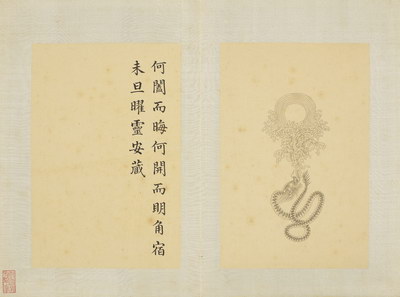 何闔而晦何開而明角宿
未旦曜靈安藏